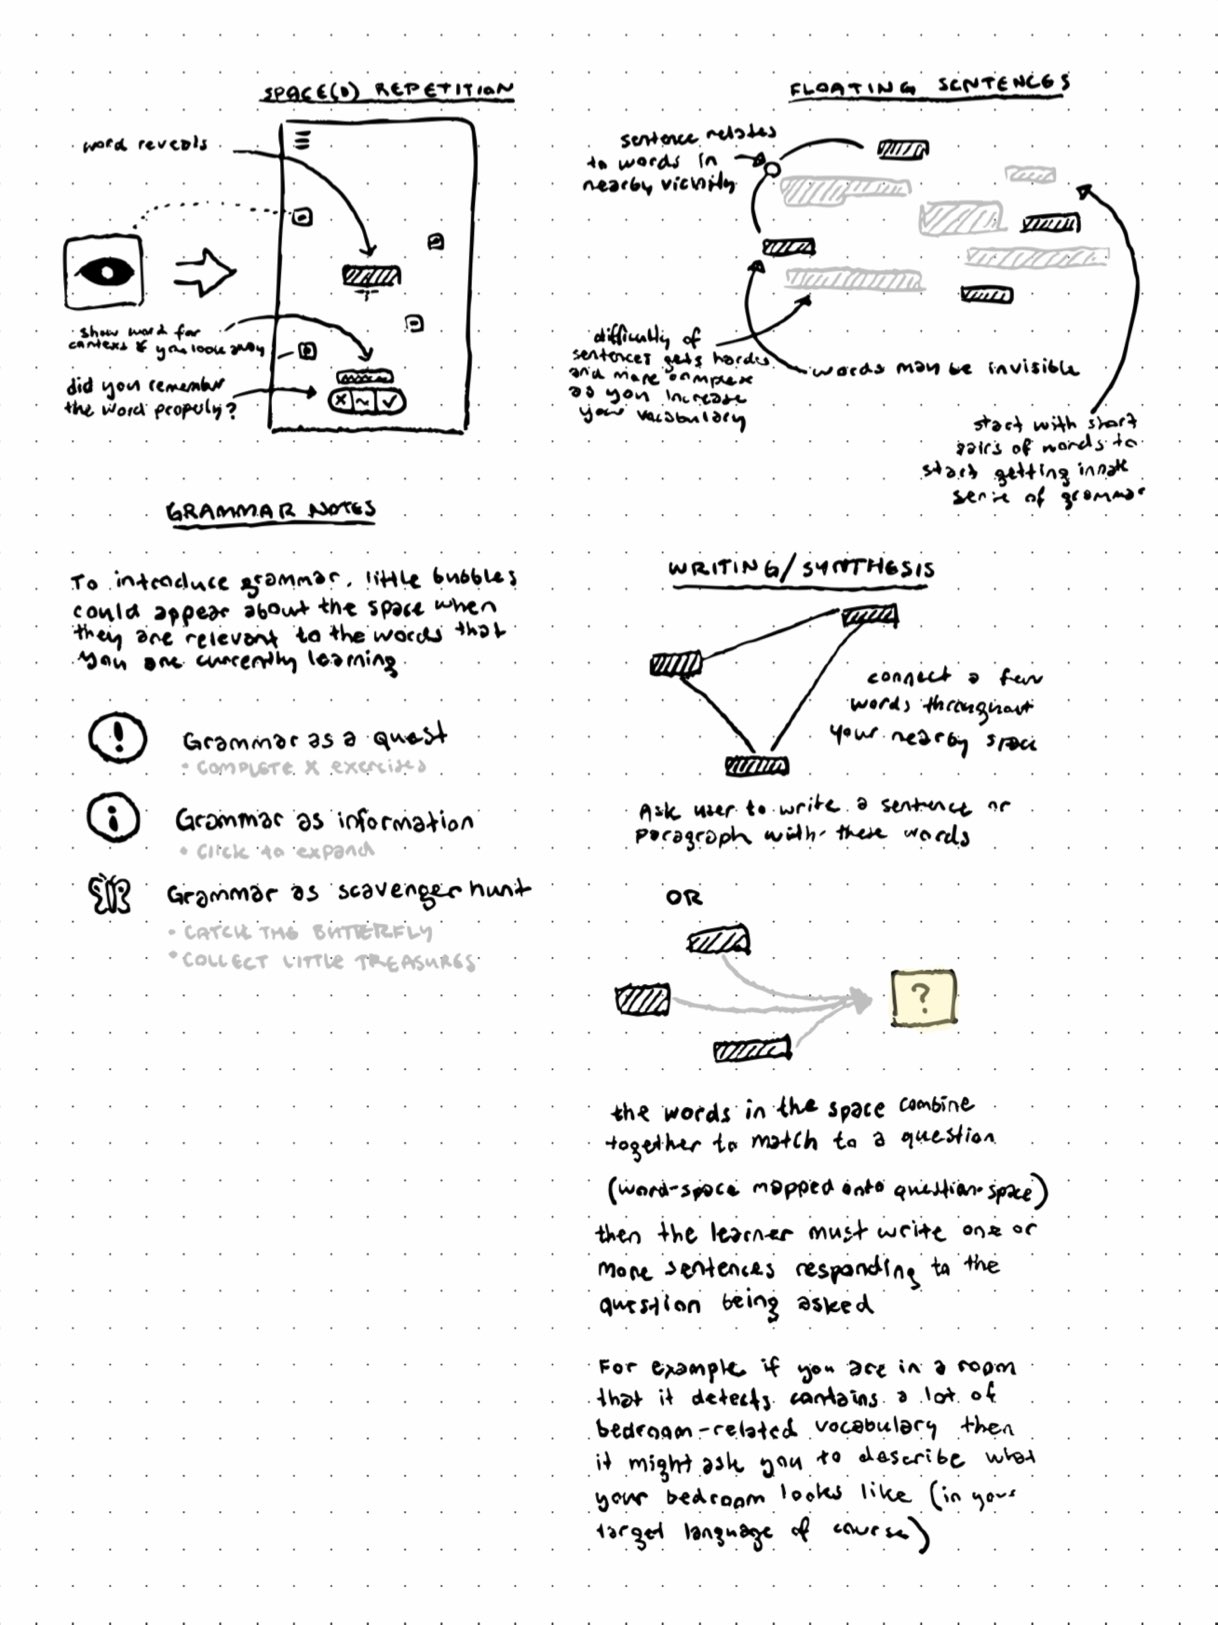 SPACE(D) REPETITION
word reveals
show word for
context if you look away
did you remember
the word properly?
X ~ ✓
FLOATING SENTENCES
sentence relates
to words in
nearby vicinity
difficulty of
sentences gets harder
and more complex
as you increase
your vocabulary
words may be invisible
start with short
pairs of words to
start getting innate
sense of grammar
GRAMMAR NOTES
To introduce grammar, little bubbles
could appear about the space when
they are relevant to the words that
you are currently learning
! Grammar as a quest
• COMPLETE X exercises
i Grammar as information
• Click to expand
Grammar as scavenger hunt
• CATCH THE BUTTERFLY
• COLLECT LITTLE TREASURES
WRITING/SYNTHESIS
connect a few
words throughout
your nearby space
Ask user to write a sentence or
paragraph with these words
OR
?
the words in the space combine
together to match to a question
(word-space mapped onto question-space)
then the learner must write one or
more sentences responding to the
question being asked
For example if you are in a room
that it detects contains a lot of
bedroom-related vocabulary then
it might ask you to describe what
your bedroom looks like (in your
target language of course)